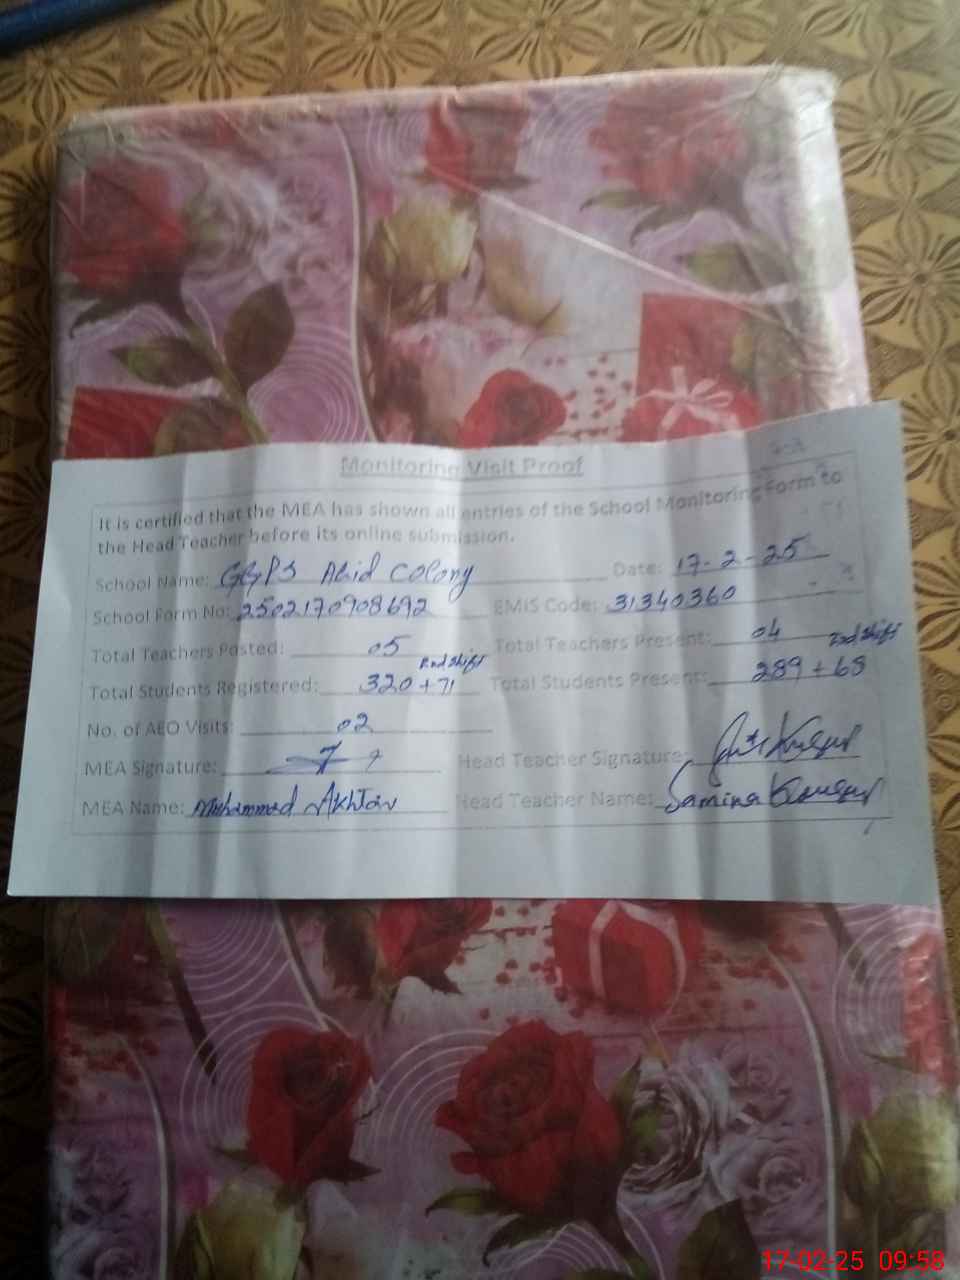 Monitoring Visit Proof
It is certified that the MEA has shown all entries of the School Monitoring Form to
the Head Teacher before its online submission.
School Name: GGPS Abid Colony Date: 17-2-25
School Form No: 2502170908692 EMIS Code: 31340360
Total Teachers Posted: 05 Total Teachers Present: 04
2nd Shift 2nd Shift
Total Students Registered: 320+71 Total Students Present: 289+68
No. of AEO Visits: 02
MEA Signature: Head Teacher Signature:
MEA Name: Muhammad Akhtar Head Teacher Name: Samina Kousar
17-02-25 09:58